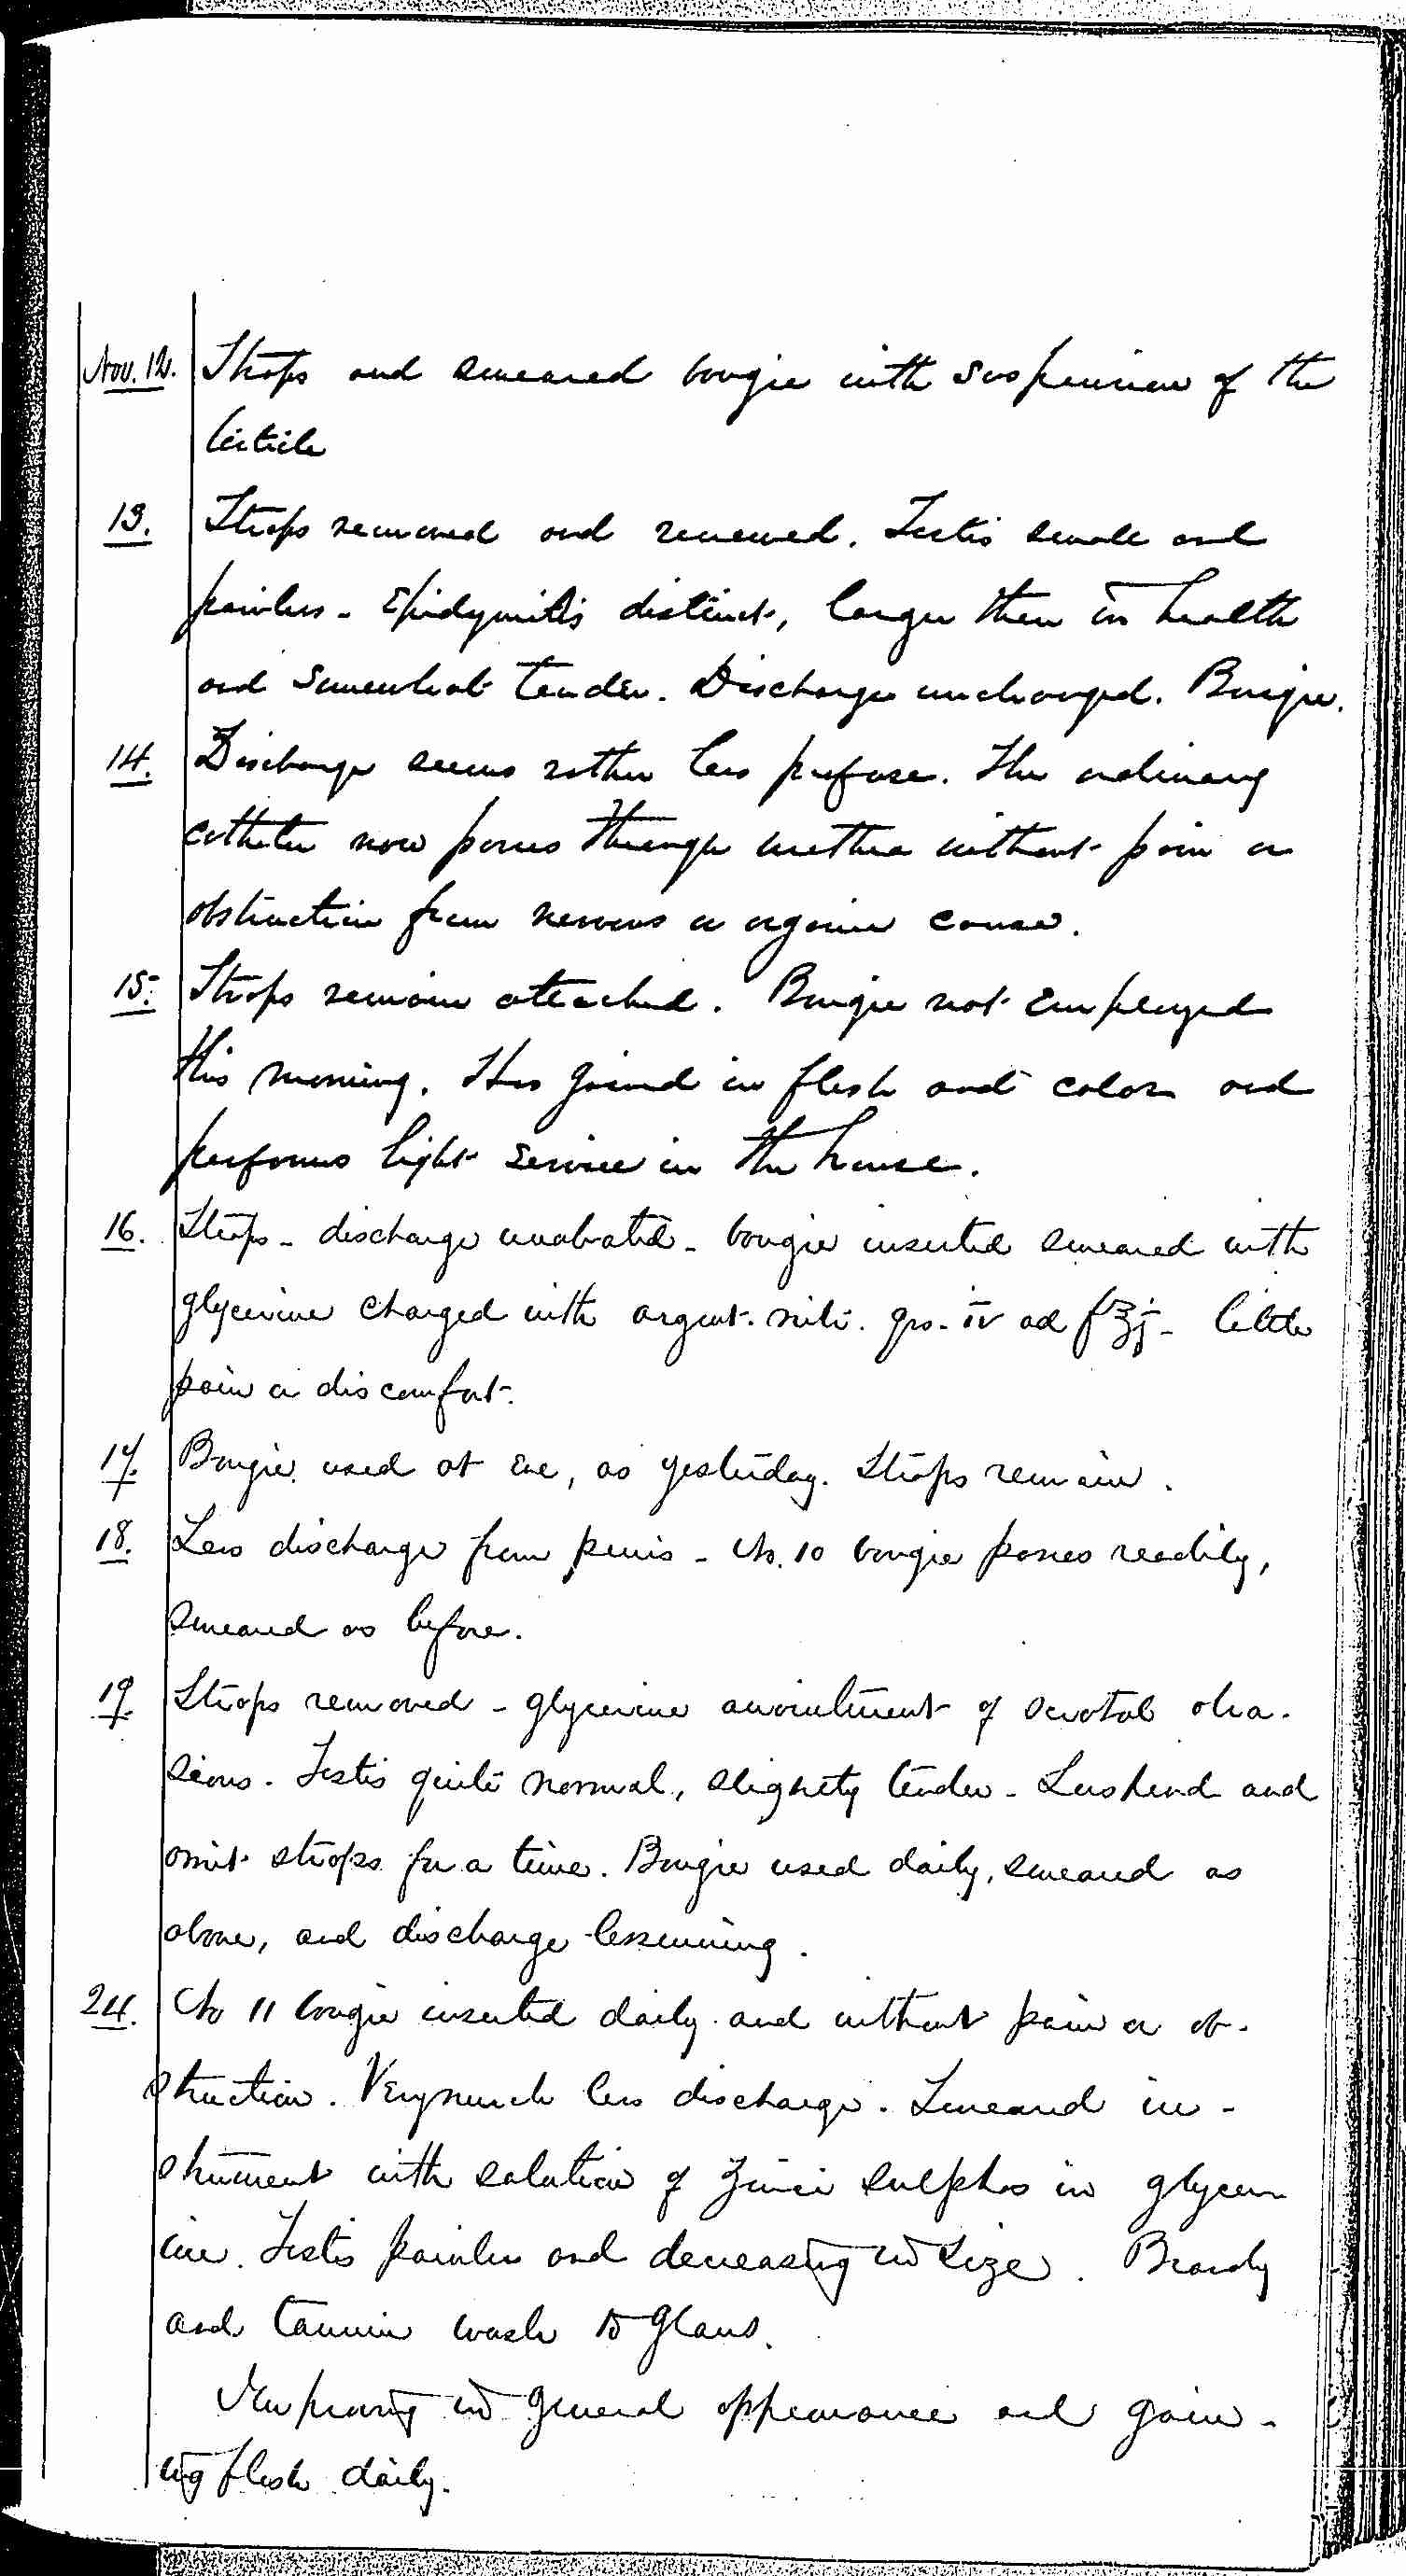 Nov. 12. Straps and smeared bougie with suspension of the
testicle
13. Straps removed and renewed. Testis small and
painless - Epidymitis distinct, larger than in health
and somewhat tender. Discharge unchanged. Bougie.
14. Discharge seems rather less profuse. The ordinary
catheter now passes through urethra without pain or
obstruction from nervous or organic cause.
15. Straps remain attached. Bougie not employed
this morning. Has gained in flesh and color and
performs light service in the house.
16. Straps - discharge unabated - bougie inserted smeared with
glycerine charged with argent. nit. grs. iv ad f℥j - little
pain or discomfort.
17. Bougie used at eve, as yesterday. Straps remain.
18. Less discharge from penis - No. 10 bougie passes readily,
smeared as before.
19. Straps removed - glycerine anointment of scrotal abra-
sions. Testis quite normal, slightly tender - Suspend and
omit straps for a time. Bougie used daily, smeared as
above, and discharge lessening.
24. No 11 bougie inserted daily and without pain or ob-
struction. Very much less discharge. Smeared in-
strument with solution of Zinci Sulphas in glycer-
ine. Testis painless and decreasing in size. Brandy
and tannin wash to glans.
Improving in general appearance and gain-
ing flesh daily.